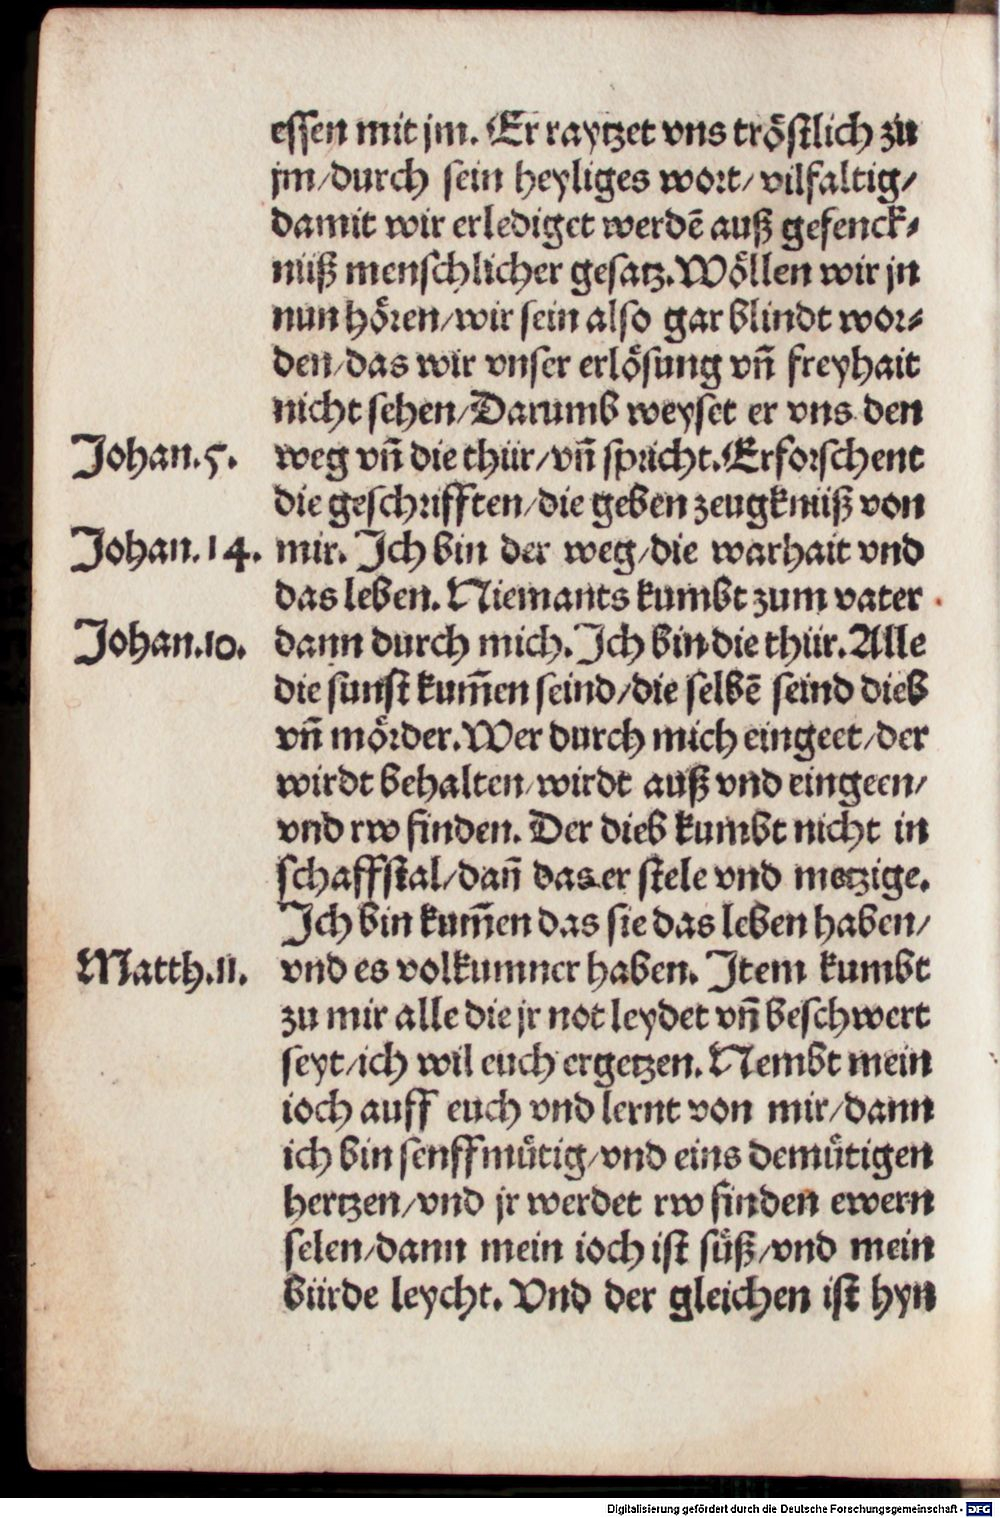 essen mit jm. Er raytzet vns tröstlich zu
jm/durch sein heyliges wort/ vilfaltig/
damit wir erlediget werdē auß gefenck⸗
nüß menschlicher gesatz. Wöllen wir jn
nun hören/wir sein also gar blindt wor⸗
den/das wir vnser erlösung vn̄ freyhait
nicht sehen/Darumb weyset er vns den
Johan.5. weg vn̄ die thür/vn̄ spricht. Erforschent
die geschrifften/die geben zeugknüß von
Johan.14. mir. Ich bin der weg/die warhait vnd
das leben. Niemants kumbt zum vater
Johan.10. dann durch mich. Ich bin die thür. Alle
die sunst kum̄en seind/die selbē seind dieb
vn̄ mörder. Wer durch mich eingeet/der
wirdt behalten/wirdt auß vnd eingeen/
vnd rw finden. Der dieb kumbt nicht in
schaffstal/dan̄ das er stele vnd metzige.
Ich bin kum̄en das sie das leben haben/
Matth.11. vnd es volkumner haben. Item kumbt
zu mir alle die jr not leydet vn̄ beschwert
seyt/ich wil euch ergetzen. Nembt mein
ioch auff euch vnd lernt von mir/dann
ich bin senffmütig/vnd eins demütigen
hertzen/vnd jr werdet rw finden ewern
selen/dann mein ioch ist süß/vnd mein
bürde leycht. Vnd der gleichen ist hyn
Digitalisierung gefördert durch die Deutsche Forschungsgemeinschaft - DFG